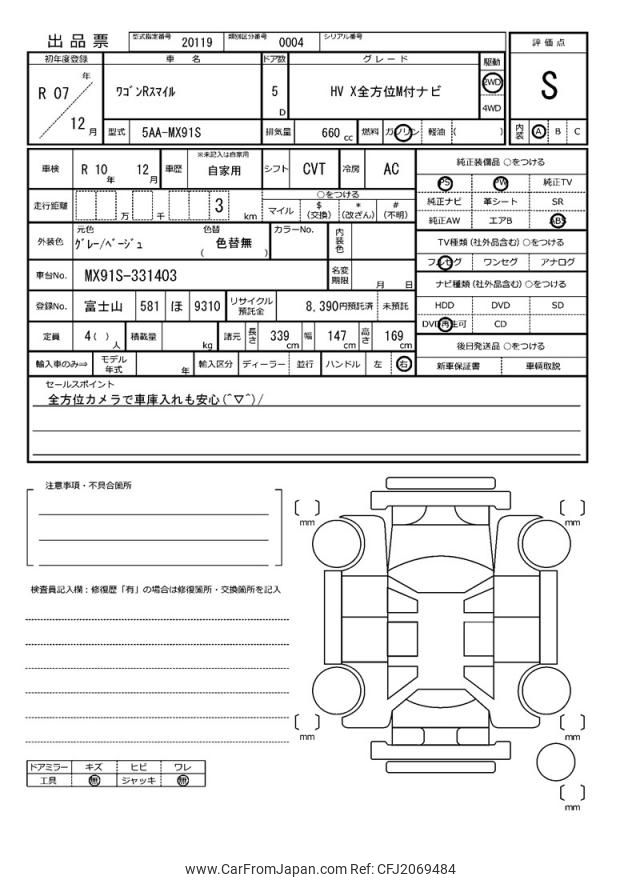 出品票 型式指定番号 20119 類別区分番号 0004 シリアル番号
初年度登録 車名 ドア数 グレード 駆動 評価点
R 07 年 12 月 ワゴンRスマイル 5 D HV X全方位M付ナビ 2WD 4WD S
型式 5AA-MX91S 排気量 660 cc 燃料 ガソリン 軽油 ( ) 内装 A B C
車検 R 10 年 12 月 車歴 ※未記入は自家用 自家用 シフト CVT 冷房 AC 純正装備品 ○をつける
PS PW 純正TV
走行距離 万 千 3 km ○をつける
マイル $(交換) *(改ざん) #(不明)
純正ナビ 革シート SR
純正AW エアB ABS
外装色 元色 グレー/ベージュ 色替 ( 色替無 ) カラーNo. 内装色
TV種類(社外品含む)○をつける
フルセグ ワンセグ アナログ
車台No. MX91S-331403 名変期限 月 日
ナビ種類(社外品含む)○をつける
登録No. 富士山 581 ほ 9310 リサイクル預託金 8,390円預託済 未預託
HDD DVD SD
DVD再生可 CD
定員 4( ) 人 積載量 kg 諸元 長さ 339 cm 幅 147 cm 高さ 169 cm
後日発送品 ○をつける
輸入車のみ⇒ モデル年式 年 輸入区分 ディーラー 並行 ハンドル 左 右
新車保証書 車輌取説
セールスポイント
全方位カメラで車庫入れも安心(^▽^)/
注意事項・不具合箇所
mm
mm
検査員記入欄:修復歴「有」の場合は修復箇所・交換箇所を記入
mm
mm
ドアミラー キズ ヒビ ワレ
工具 無 ジャッキ 無
mm
www.CarFromJapan.com Ref: CFJ2069484